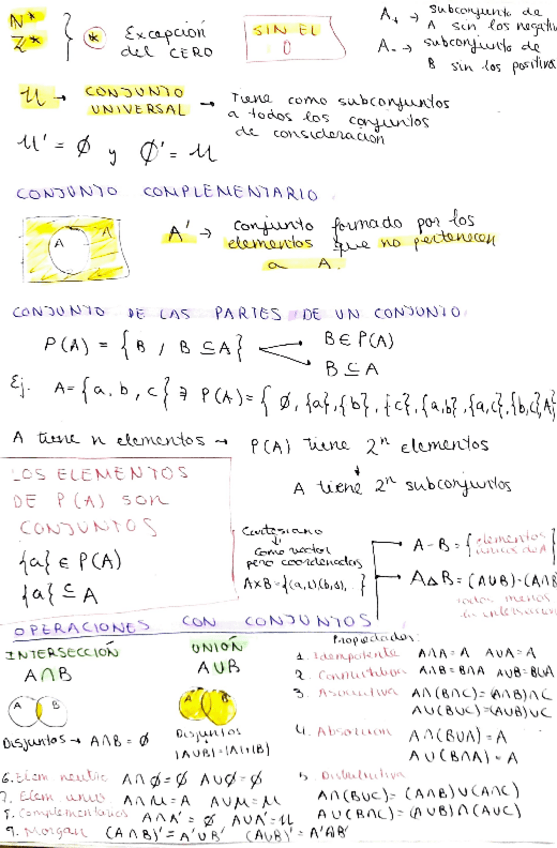 N*
Z*
* Excepción
del CERO
SIN EL
0
A+ → subconjunto de
A sin los negativ
A- → subconjunto de
B sin los positivos
U → CONJUNTO
UNIVERSAL → Tiene como subconjuntos
a todos los conjuntos
de consideración
U' = ∅ y ∅' = U
CONJUNTO COMPLEMENTARIO
A A'
A' → conjunto formado por los
elementos que no pertenecen
a A.
CONJUNTO DE LAS PARTES DE UN CONJUNTO
P(A) = { B / B ⊆ A }
B ∈ P(A)
B ⊆ A
Ej. A = {a, b, c} ∃ P(A) = { ∅, {a}, {b}, {c}, {a,b}, {a,c}, {b,c}, A}
A tiene n elementos → P(A) tiene 2ⁿ elementos
↓
A tiene 2ⁿ subconjuntos
LOS ELEMENTOS
DE P(A) SON
CONJUNTOS
{a} ∈ P(A)
{a} ⊆ A
Cartesiano
↓
como vector
pero coordenadas
AxB = {(a,b),(b,a), }
A-B = {elementos
únicos de A}
A∆B = (A∪B)-(A∩B)
todos menos
la intersección
OPERACIONES CON CONJUNTOS
INTERSECCIÓN
A∩B
A B
Disjuntos → A∩B = ∅
UNIÓN
A∪B
A B
Disjuntos
|A∪B| = |A|+|B|
Propiedades:
1. Idempotente A∩A = A A∪A = A
2. Conmutativa A∩B = B∩A A∪B = B∪A
3. Asociativa A∩(B∩C) = (A∩B)∩C
A∪(B∪C) = (A∪B)∪C
4. Absorcion A∩(B∪A) = A
A∪(B∩A) = A
5. Distributiva
A∩(B∪C) = (A∩B)∪(A∩C)
A∪(B∩C) = (A∪B)∩(A∪C)
6. Elem neutro A∩∅ = ∅ A∪∅ = ∅
7. Elem univ A∩U = A A∪U = U
8. Complementarios A∩A' = ∅ A∪A' = U
9. Morgan (A∩B)' = A'∪B' (A∪B)' = A'∩B'